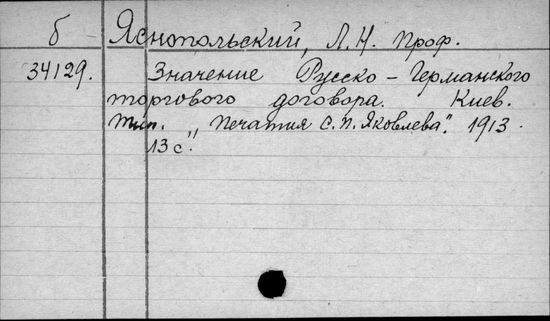 б Яснопольский, Л.Н. Проф.
34129. Значение Русско-Германского
торгового договора. Киев.
Тип. „Печатня С.П. Яковлева". 1913.
13 с.